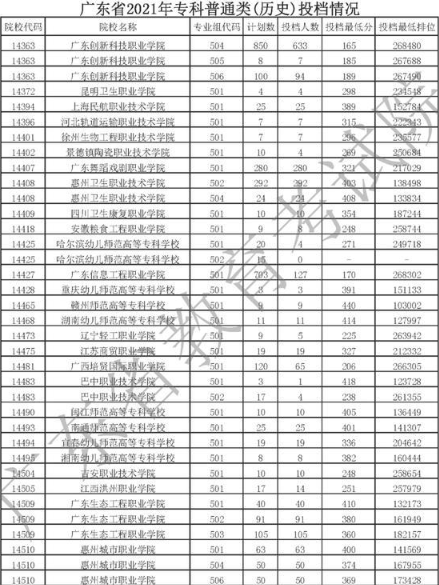 广东省2021年专科普通类(历史)投档情况
院校代码 院校名称 专业组代码 计划数 投档人数 投档最低分 投档最低排位
14363 广东创新科技职业学院 504 850 633 165 268480
14363 广东创新科技职业学院 505 8 7 185 267688
14363 广东创新科技职业学院 506 100 94 189 267490
14372 昆明卫生职业学院 501 4 4 298 234548
14394 上海民航职业技术学院 501 25 25 389 152784
14396 河北轨道运输职业技术学院 501 7 7 315 222343
14401 徐州生物工程职业技术学院 501 7 7 296 235577
14402 景德镇陶瓷职业技术学院 501 10 4 269 250684
14407 广东舞蹈戏剧职业学院 501 280 280 321 217029
14408 惠州卫生职业技术学院 502 292 392 403 138498
14408 惠州卫生职业技术学院 504 24 24 408 133834
14409 四川卫生康复职业学院 501 10 10 354 187244
14418 安徽粮食工程职业学院 501 9 8 248 258744
14425 哈尔滨幼儿师范高等专科学校 501 20 4 271 249718
14425 哈尔滨幼儿师范高等专科学校 502 15 0 - -
14427 广东信息工程职业学院 501 703 127 170 268302
14428 重庆幼儿师范高等专科学校 501 3 3 391 151133
14465 赣州师范高等专科学校 501 9 440 103002
14468 湖南幼儿师范高等专科学校 501 11 11 414 127997
14473 辽宁轻工职业学院 501 9 5 225 263942
14475 江苏商贸职业学院 501 19 19 327 212332
14481 广西培贤国际职业学院 501 120 65 206 266305
14483 巴中职业技术学院 501 3 1 418 123728
14483 巴中职业技术学院 502 17 4 238 261355
14490 闽江师范高等专科学校 501 10 10 405 136449
14493 南通师范高等专科学校 501 25 25 401 141307
14494 宜春幼儿师范高等专科学校 501 19 19 336 204642
14495 湘南幼儿师范高等专科学校 501 8 8 382 160444
14504 吉安职业技术学院 501 10 10 248 258654
14505 江西洪州职业学院 501 17 14 251 257979
14509 广东生态工程职业学院 501 40 40 410 132173
14509 广东生态工程职业学院 502 91 91 380 161949
14509 广东生态工程职业学院 503 105 105 360 182157
14510 惠州城市职业学院 501 63 63 400 141569
14510 惠州城市职业学院 504 50 50 374 167955
14510 惠州城市职业学院 506 50 50 369 173428
广东省教育考试院